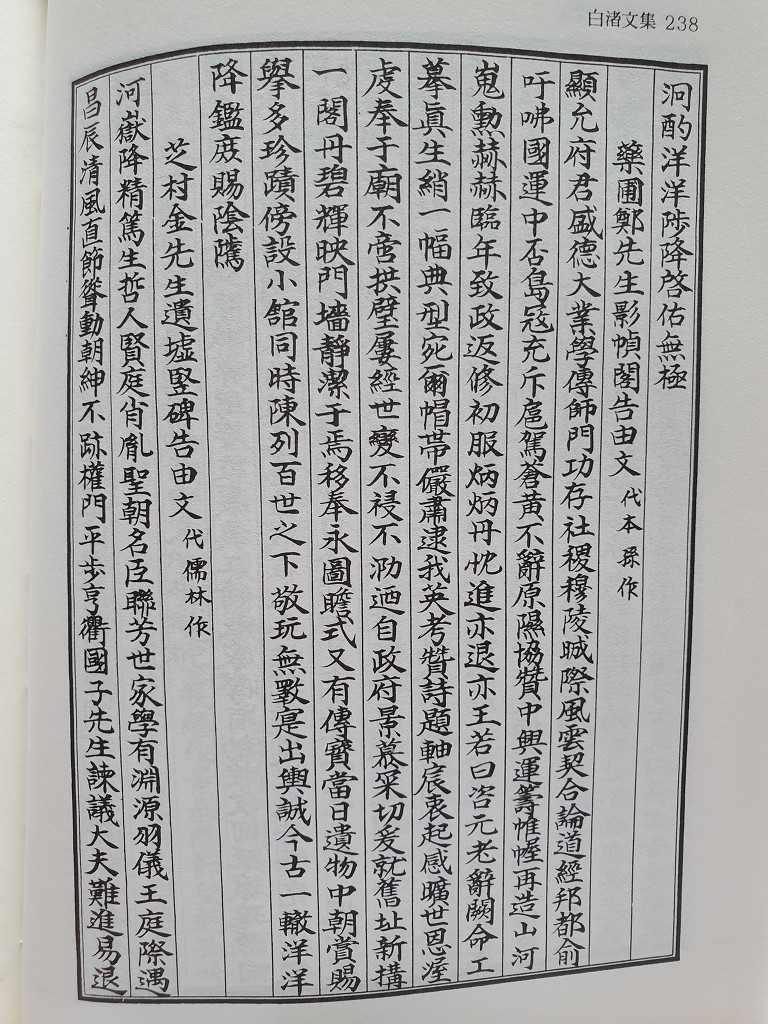 白渚文集 238
泂酌洋洋陟降啓佑無極
藥圃鄭先生影幀閣告由文 代本孫作
顯允府君盛德大業學傳師門功存社稷穆陵晠際風雲契合論道經邦都俞
吁咈國運中否島寇充斥扈駕蒼黃不辭原隰協贊中興運籌帷幄再造山河
嵬勳赫赫臨年致政返修初服炳炳丹忱進亦退亦王若曰咨元老辭闕命工
摹眞生綃一幅典型宛爾帽帶儼肅逮我英考贊詩題軸宸衷起感曠世恩渥
虔奉于廟不啻拱璧屢經世變不祲不泐迺自政府景慕采切爰就舊址新搆
一閣丹碧輝映門墻靜潔于焉移奉永圖瞻式又有傳寶當日遺物中朝賞賜
擧多珍蹟傍設小舘同時陳列百世之下敬玩無斁寔出輿誠今古一轍洋洋
降鑑庶賜陰騭
芝村金先生遺墟竪碑告由文 代儒林作
河嶽降精篤生哲人賢庭肖胤聖朝名臣聯芳世家學有淵源羽儀王庭際遇
昌辰清風直節聳動朝紳不跡權門平步亨衢國子先生諫議大夫難進易退